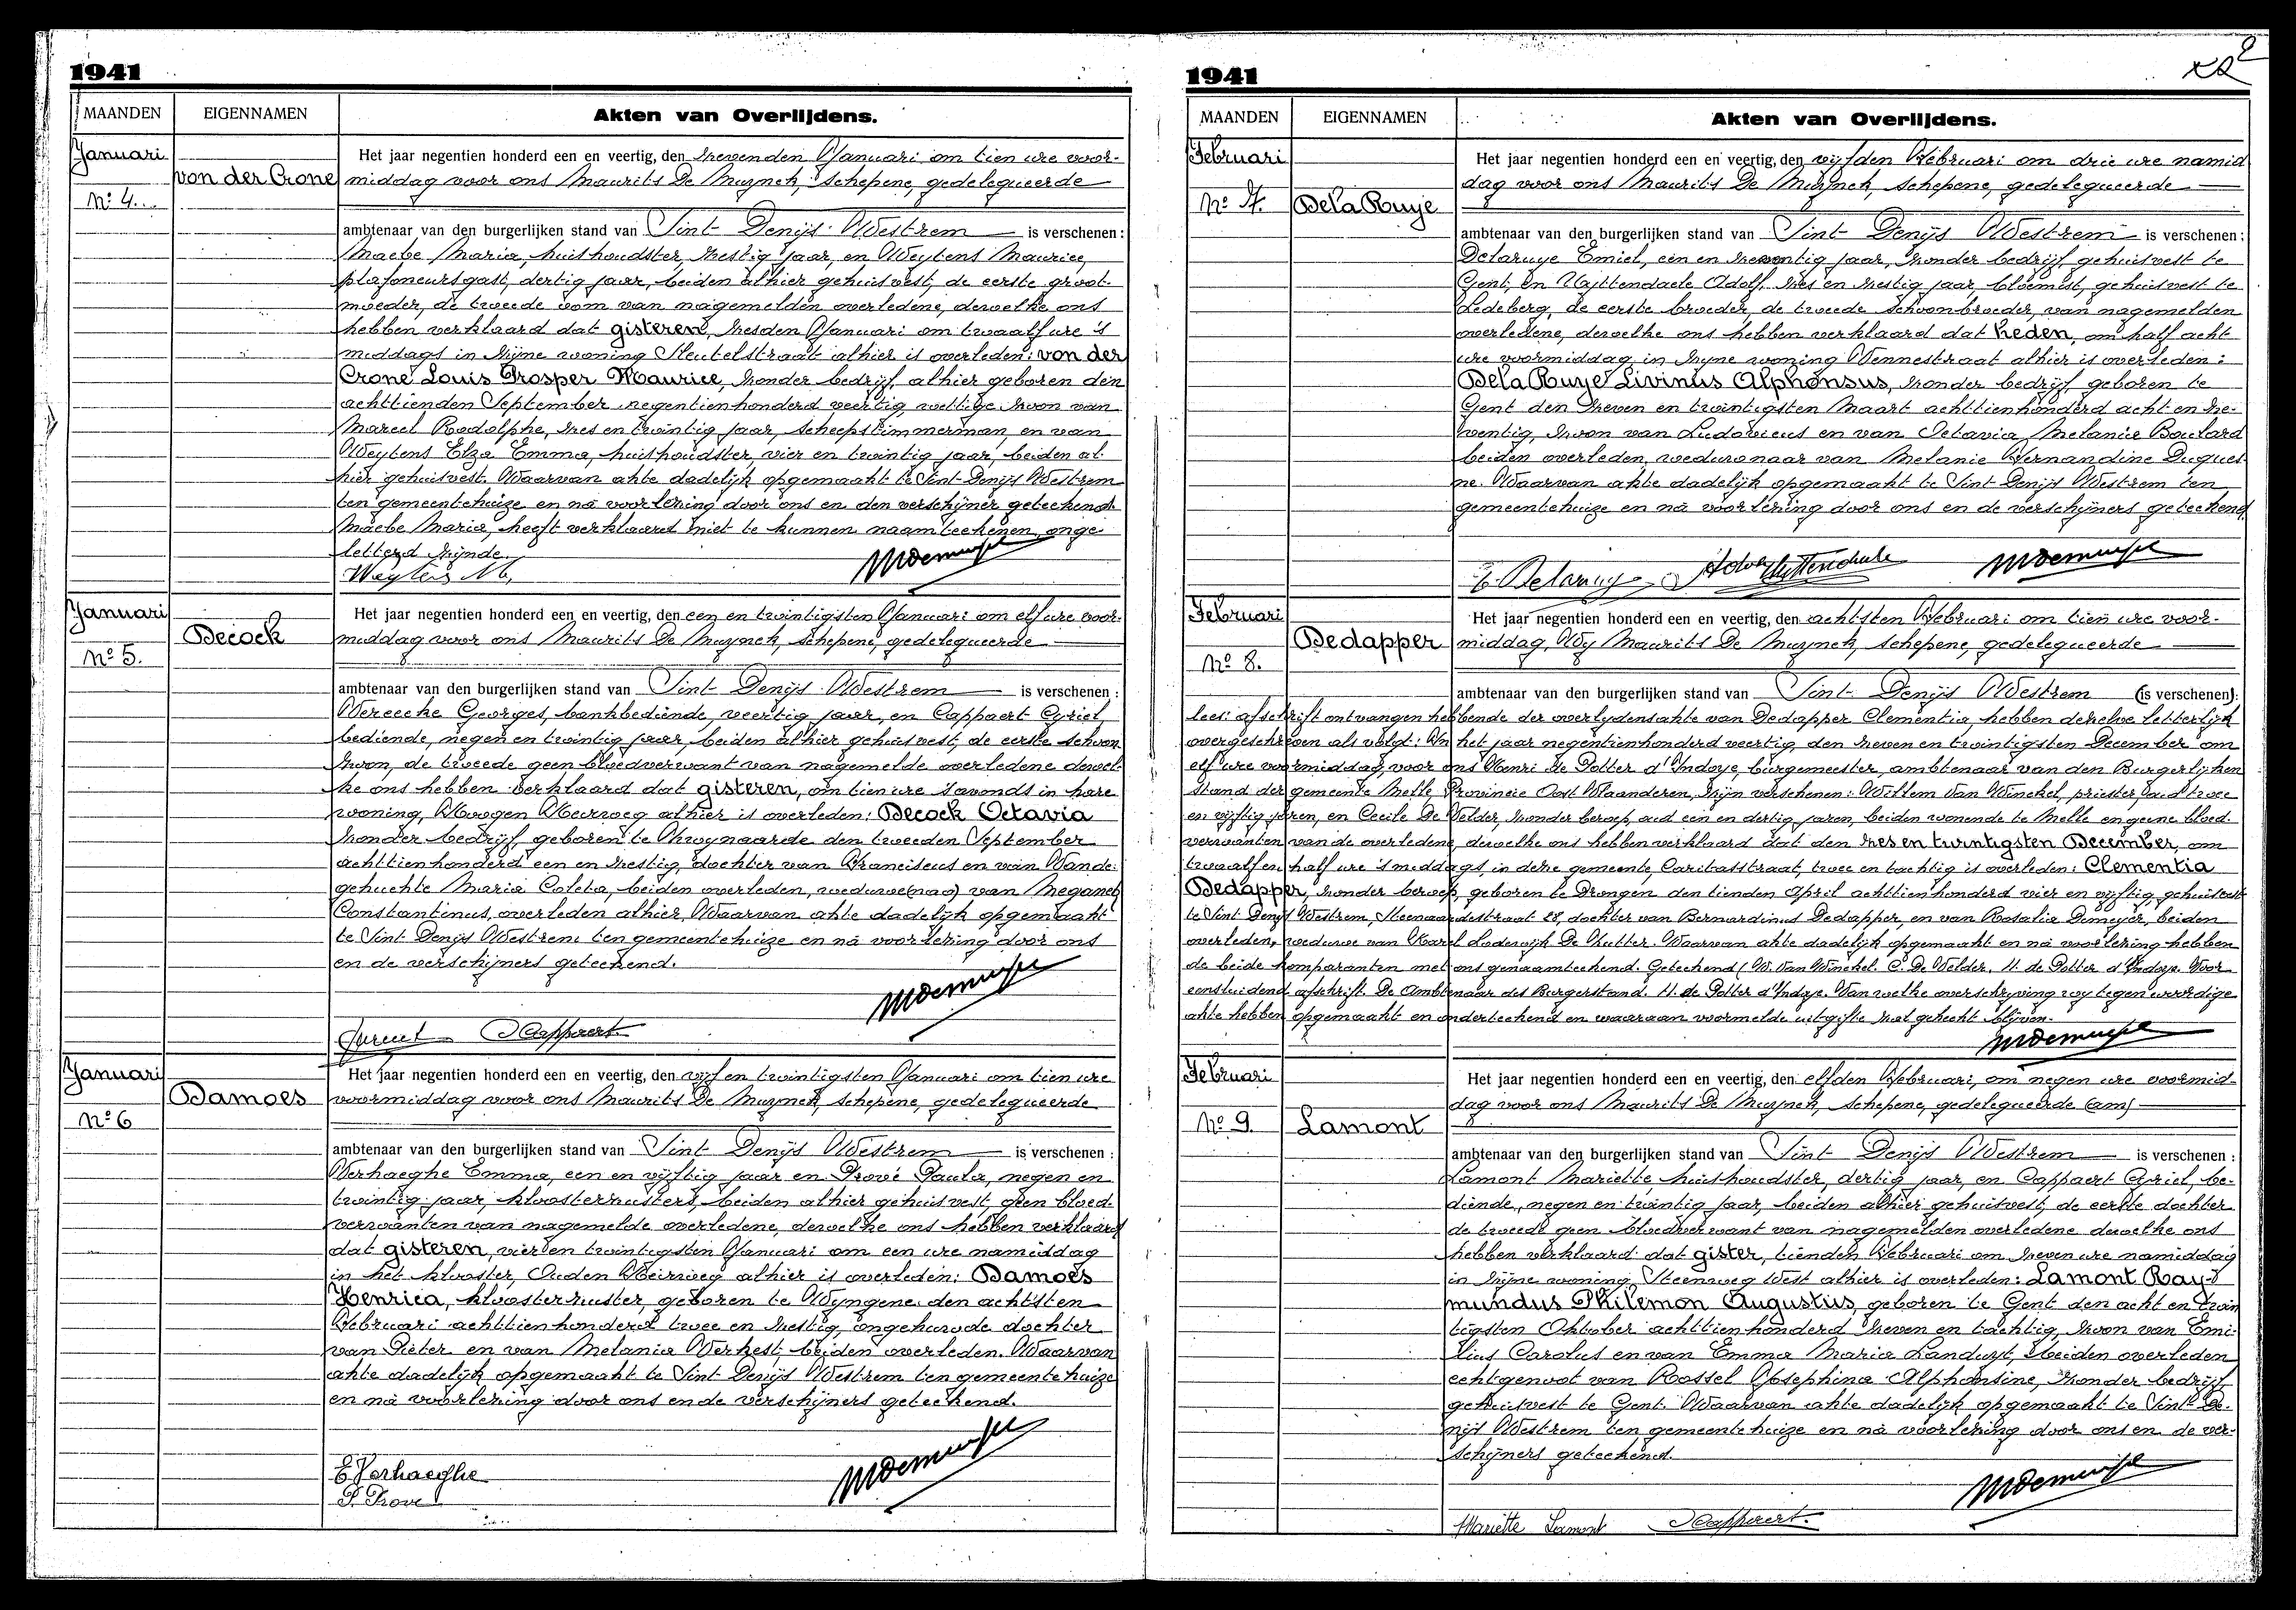 1941
MAANDEN EIGENNAMEN Akten van Overlijdens.
Januari
von der Crone
No 4.
Het jaar negentien honderd een en veertig, den zevenden Januari om tien ure voor-
middag voor ons Maurits De Muynck, Schepene, gedelegueerde
ambtenaar van den burgerlijken stand van Sint Denijs Westrem is verschenen:
Maebe Maria, huishoudster, zestig jaar, en Weytens Maurice,
plafoneursgast, dertig jaar, beiden alhier gehuisvest, de eerste groot-
moeder, de tweede oom van nagemelden overledene, derwelke ons
hebben verklaard dat gisteren, zesden Januari om twaalf ure 's
middags in zijne woning Sleutelstraat alhier is overleden: von der
Crone Louis Prosper Maurice, zonder bedrijf, alhier geboren den
achttienden September negentienhonderd veertig, wettige zoon van
Marcel Rodolphe, zes en twintig jaar, scheepstimmerman, en van
Weytens Elza Emma, huishoudster, vier en twintig jaar, beiden al-
hier gehuisvest. Waarvan akte dadelijk opgemaakt te Sint Denijs Westrem
ten gemeentehuize en na voorlezing door ons en den verschijner geteekend.
Maebe Maria, heeft verklaard niet te kunnen naamteekenen, onge-
letterd zijnde.
Weytens M.
Januari
Decock
No 5.
Het jaar negentien honderd een en veertig, den een en twintigsten Januari om elf ure voor-
middag voor ons Maurits De Muynck, Schepene, gedelegueerde
ambtenaar van den burgerlijken stand van Sint Denijs Westrem is verschenen:
Vereecke Georges, bankbediende, veertig jaar, en Cappaert Cyriel,
bediende, negen en twintig jaar, beiden alhier gehuisvest, de eerste schoon-
zoon, de tweede geen bloedverwant van nagemelde overledene derwel-
ke ons hebben verklaard dat gisteren, om tien ure 's avonds in hare
woning, Hoogen Heirweg alhier is overleden: Decock Octavia
zonder bedrijf, geboren te Zwynaarde den tweeden September
achttienhonderd een en zestig, dochter van Franciscus en van Vande-
gehuchte Maria Coleta, beiden overleden, weduwe(nas) van Meganck
Constantinus, overleden alhier. Waarvan akte dadelijk opgemaakt
te Sint Denijs Westrem ten gemeentehuize en na voorlezing door ons
en de verschijners geteekend.
Cappaert
Januari
Damoes
No 6
Het jaar negentien honderd een en veertig, den vijf en twintigsten Januari om tien ure
voormiddag voor ons Maurits De Muynck, Schepene, gedelegueerde
ambtenaar van den burgerlijken stand van Sint Denijs Westrem is verschenen:
Verhaeghe Emma, een en vijftig jaar en Prové Paula, negen en
twintig jaar, kloosterzusters, beiden alhier gehuisvest, geen bloed-
verwanten van nagemelde overledene, derwelke ons hebben verklaard
dat gisteren, vier en twintigsten Januari om een ure namiddag
in het klooster, Ouden Heirweg alhier is overleden: Damoes
Henrica, kloosterzuster, geboren te Wyngene den achtsten
Februari achttienhonderd twee en zestig, ongehuwde dochter
van Pieter en van Melania Verkest, beiden overleden. Waarvan
akte dadelijk opgemaakt te Sint Denijs Westrem ten gemeentehuize
en na voorlezing door ons en de verschijners geteekend.
E Verhaeghe
P. Prové
1941
MAANDEN EIGENNAMEN Akten van Overlijdens.
Februari
No 7. DelaRuye
Het jaar negentien honderd een en veertig, den vijfden Februari om drie ure namid
dag voor ons Maurits De Muynck, Schepene, gedelegueerde
ambtenaar van den burgerlijken stand van Sint Denijs Westrem is verschenen:
Delaruye Emiel, een en zeventig jaar, zonder bedrijf gehuisvest te
Gent, en Uyttendaele Adolf, zes en zestig jaar, bloemist, gehuisvest te
Ledeberg, de eerste broeder, de tweede schoonbroeder, van nagemelden
overledene, derwelke ons hebben verklaard dat heden, om half acht
ure voormiddag in zijne woning Vennestraat alhier is overleden:
DelaRuye Livinus Alphonsus, zonder bedrijf, geboren te
Gent den zeven en twintigsten Maart achttienhonderd acht en ze-
ventig, zoon van Ludovicus en van Octavia Melanie Boulard
beiden overleden, weduwnaar van Melanie Fernandine Duques-
ne. Waarvan akte dadelijk opgemaakt te Sint Denijs Westrem ten
gemeentehuize en na voorlezing door ons en de verschijners geteekend.
E. Delaruye Adolf Uyttendaele
Februari
Dedapper
No 8.
Het jaar negentien honderd een en veertig, den achtsten Februari om tien ure voor-
middag, Wij Maurits De Muynck, Schepene, gedelegueerde
ambtenaar van den burgerlijken stand van Sint Denijs Westrem (is verschenen):
lees: afschrift ontvangen hebbende der overlydensakte van Dedapper Clementia, hebben dezelve letterlijk
overgeschreven als volgt: In het jaar negentienhonderd veertig den zeven en twintigsten December om
elf ure voormiddag, voor ons Henri de Potter d'Indoye, burgemeester, ambtenaar van den Burgerlijken
Stand der gemeente Melle Provincie Oost Vlaanderen, zijn verschenen: Willem Van Winckel, priester, oud twee
en vijftig jaren, en Cecile De Velder, zonder beroep, oud een en dertig jaren, beiden wonende te Melle en geene bloed-
verwanten van de overledene, derwelke ons hebben verklaard dat den zes en twintigsten December, om
twaalf en half ure 's middags, in deze gemeente, Caritasstraat, twee en tachtig is overleden: Clementia
Dedapper, zonder beroep, geboren te Drongen den tienden April achttienhonderd vier en vijftig, gehuisvest
te Sint Denijs Westrem, Steenaardestraat 28, dochter van Bernardinus Dedapper, en van Rosalia Demeyer, beiden
overleden, weduwe van Karel Lodewijk De Rutter. Waarvan akte dadelijk opgemaakt en na voorlezing hebben
de beide komparanten met ons genaamteekend. Geteekend (W. Van Winckel. C. De Velder. H. de Potter d'Indoye. Voor
eensluidend afschrift. De Ambtenaar des Burgerstand. H. de Potter d'Indoye. Van welke overschrijving wy tegenwoordige
akte hebben opgemaakt en onderteekend en waaraan voormelde uitgifte zal gehecht blijven.
Februari
No 9. Lamont
Het jaar negentien honderd een en veertig, den elfden Februari, om negen ure voormid-
dag voor ons Maurits De Muynck, Schepene, gedelegueerde (am)
ambtenaar van den burgerlijken stand van Sint Denijs Westrem is verschenen:
Lamont Mariette huishoudster, dertig jaar, en Cappaert Cyriel, be-
diende, negen en twintig jaar, beiden alhier gehuisvest, de eerste dochter
de tweede geen bloedverwant van nagemelden overledene derwelke ons
hebben verklaard dat gister, tienden Februari om zeven ure namiddag
in zijne woning, Steenweg West alhier is overleden: Lamont Ray-
mundus Philemon Augustus, geboren te Gent den acht en twin
tigsten Oktober achttienhonderd zeven en tachtig, zoon van Emi-
lius Carolus en van Emma Maria Landuyt, beiden overleden
echtgenoot van Rossel Josephina Alphonsine, zonder bedrijf,
gehuisvest te Gent. Waarvan akte dadelijk opgemaakt te Sint De-
nijs Westrem ten gemeentehuize en na voorlezing door ons en de ver-
schijners geteekend.
Mariette Lamont Cappaert.